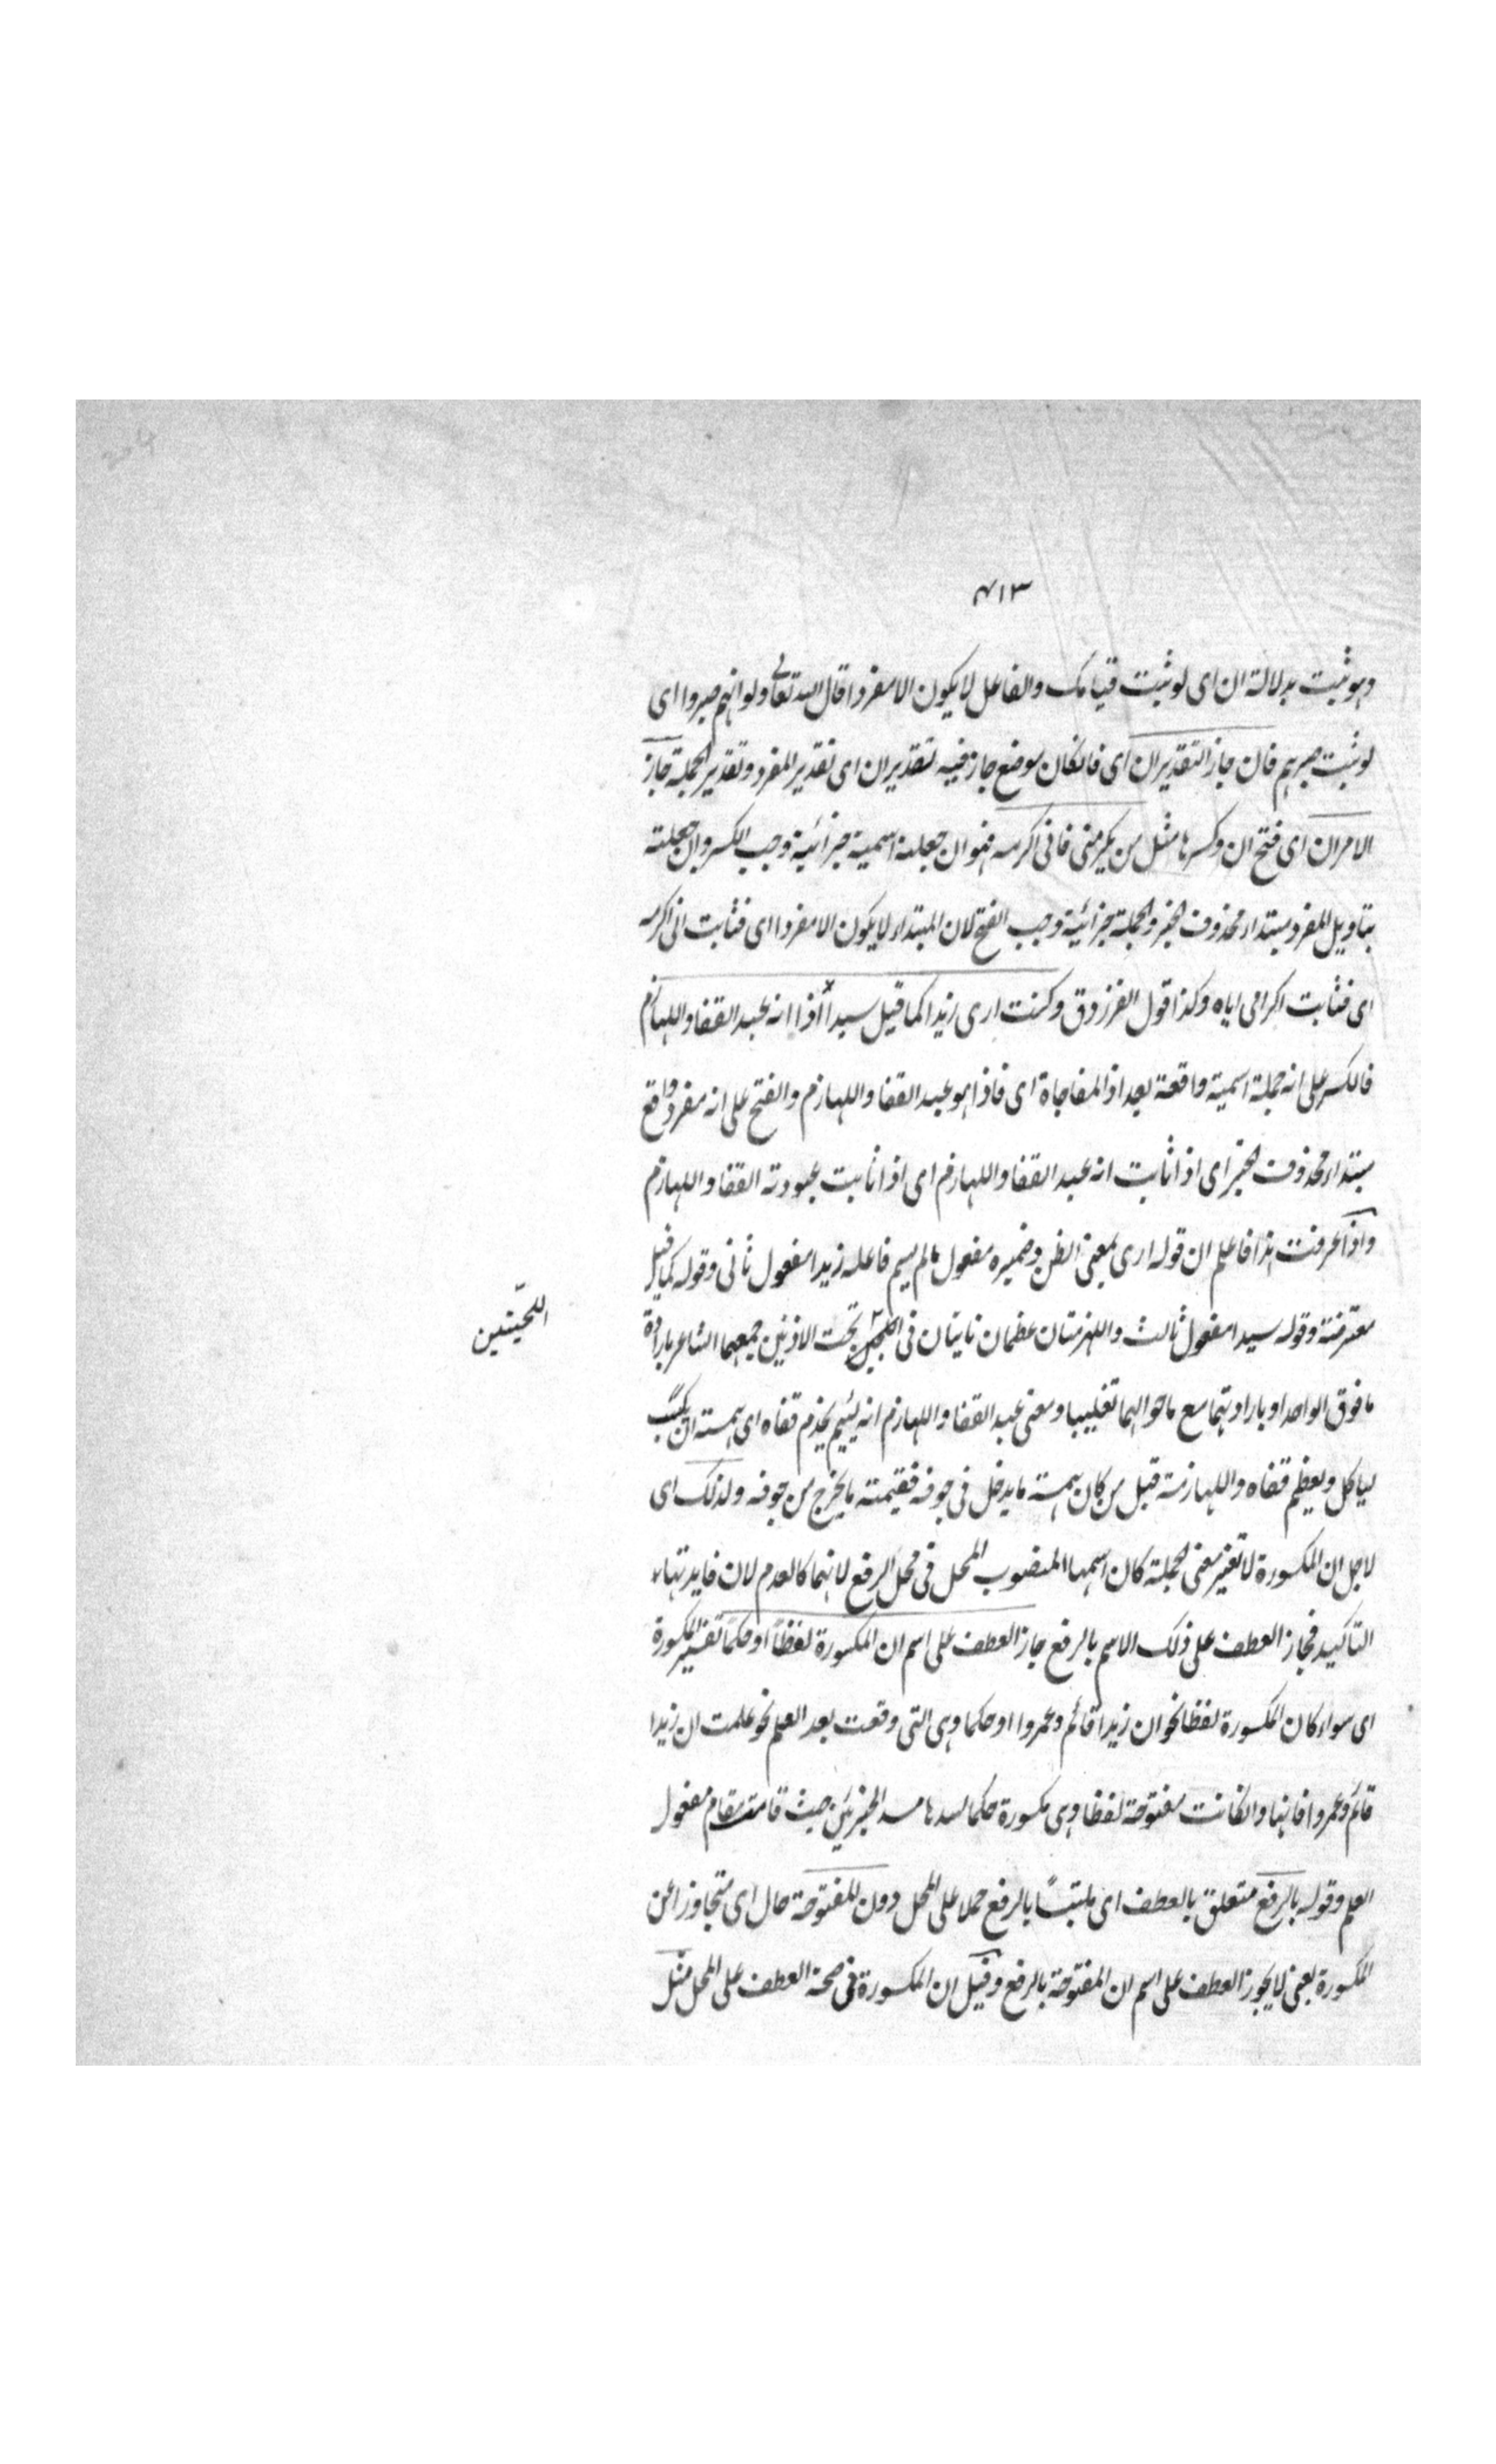 ٤١٣
وهو ثبت بدلالة ان اى لو ثبت قيامك والفاعل لا يكون الا مفردا قال الله تعالى ولو انهم صبروا اى
لو ثبت صبرهم فان جاز التقديران اى فان كان موضع جاز فيه تقديران اى تقدير المفرد وتقدير الجملة جاز
الامران اى فتح ان وكسرها مثل من يكرمنى فانى اكرمه فهو ان جعلته اسمية جزائية وجب الكسر وان جعلته
بتاويل المفرد مبتداء محذوف الخبر والجملة جزائية وجب الفتح لان المبتداء لا يكون الا مفردا اى فثابت انى اكرمه
اى فثابت اكرامى اياه وكذا قول الفرزدق وكنت ارى زيدا كما قيل سيدا اذا انه عبد القفا واللهازم
فالكسر على انه جملة اسمية واقعة بعد اذا المفاجاة اى فاذا هو عبد القفا واللهازم والفتح على انه مفرد واقع
مبتداء محذوف الخبر اى اذا ثابت انه عبد القفا واللهازم اى اذا ثابت عبودته القفا واللهازم
واذا عرفت هذا فاعلم ان قوله ارى بمعنى الظن وضميره مفعول مالم يسم فاعله زيدا مفعول ثانى وقوله كما قيل
معترضة وقوله سيدا مفعول ثالث واللهزمتان عظمان ناتيان فى تحت الاذنين جمعهما الشاعر بارادة
اللحيّتين
ما فوق الواحد او بارادتهما مع ما حواليهما تغليبا ومعنى عبد القفا واللهازم انه لئيم يخدم قفاه اى همته ان
لياكل ويعظم قفاه واللهازمة قيل من كان همته ما يدخل فى جوفه فقيمته ما يخرج من جوفه ولذلك اى
لاجل ان المكسورة لا تغير معنى الجملة كان اسمها المنصوب المحل فى محل الرفع لانهما كالعدم لان فايدتهاء
التاكيد فجاز العطف على ذلك الاسم بالرفع جاز العطف على اسم ان المكسورة لفظاً او حكماً تفسير المكسورة
اى سواء كان المكسورة لفظا نحو ان زيدا قائم وعمروا او حكما وهى التى وقعت بعد العلم نحو علمت ان زيدا
قائم وعمروا فانها وان كانت مفتوحة لفظا وهى مكسورة حكما لسدها مسد الجزئين حيث قامت مقام مفعول
العلم وقوله بالرفع متعلق بالعطف اى ملتبسًا بالرفع حملا على المحل دون المفتوحة حال اى متجاوزا عن
المكسورة يعنى لا يجوز العطف على اسم ان المفتوحة بالرفع وقيل ان المكسورة فى صحة العطف على المحل مثل